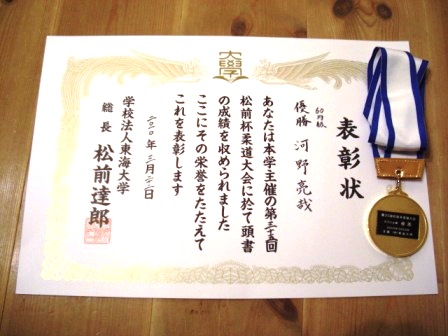 大學
表彰状
60㎏級
優勝 河野亮哉
あなたは本学主催の第三五回
松前杯柔道大会に於て頭書
の成績を収められました
ここにその栄誉をたたえて
これを表彰します
二〇一〇年三月二二日
学校法人東海大学
総長 松前達郎